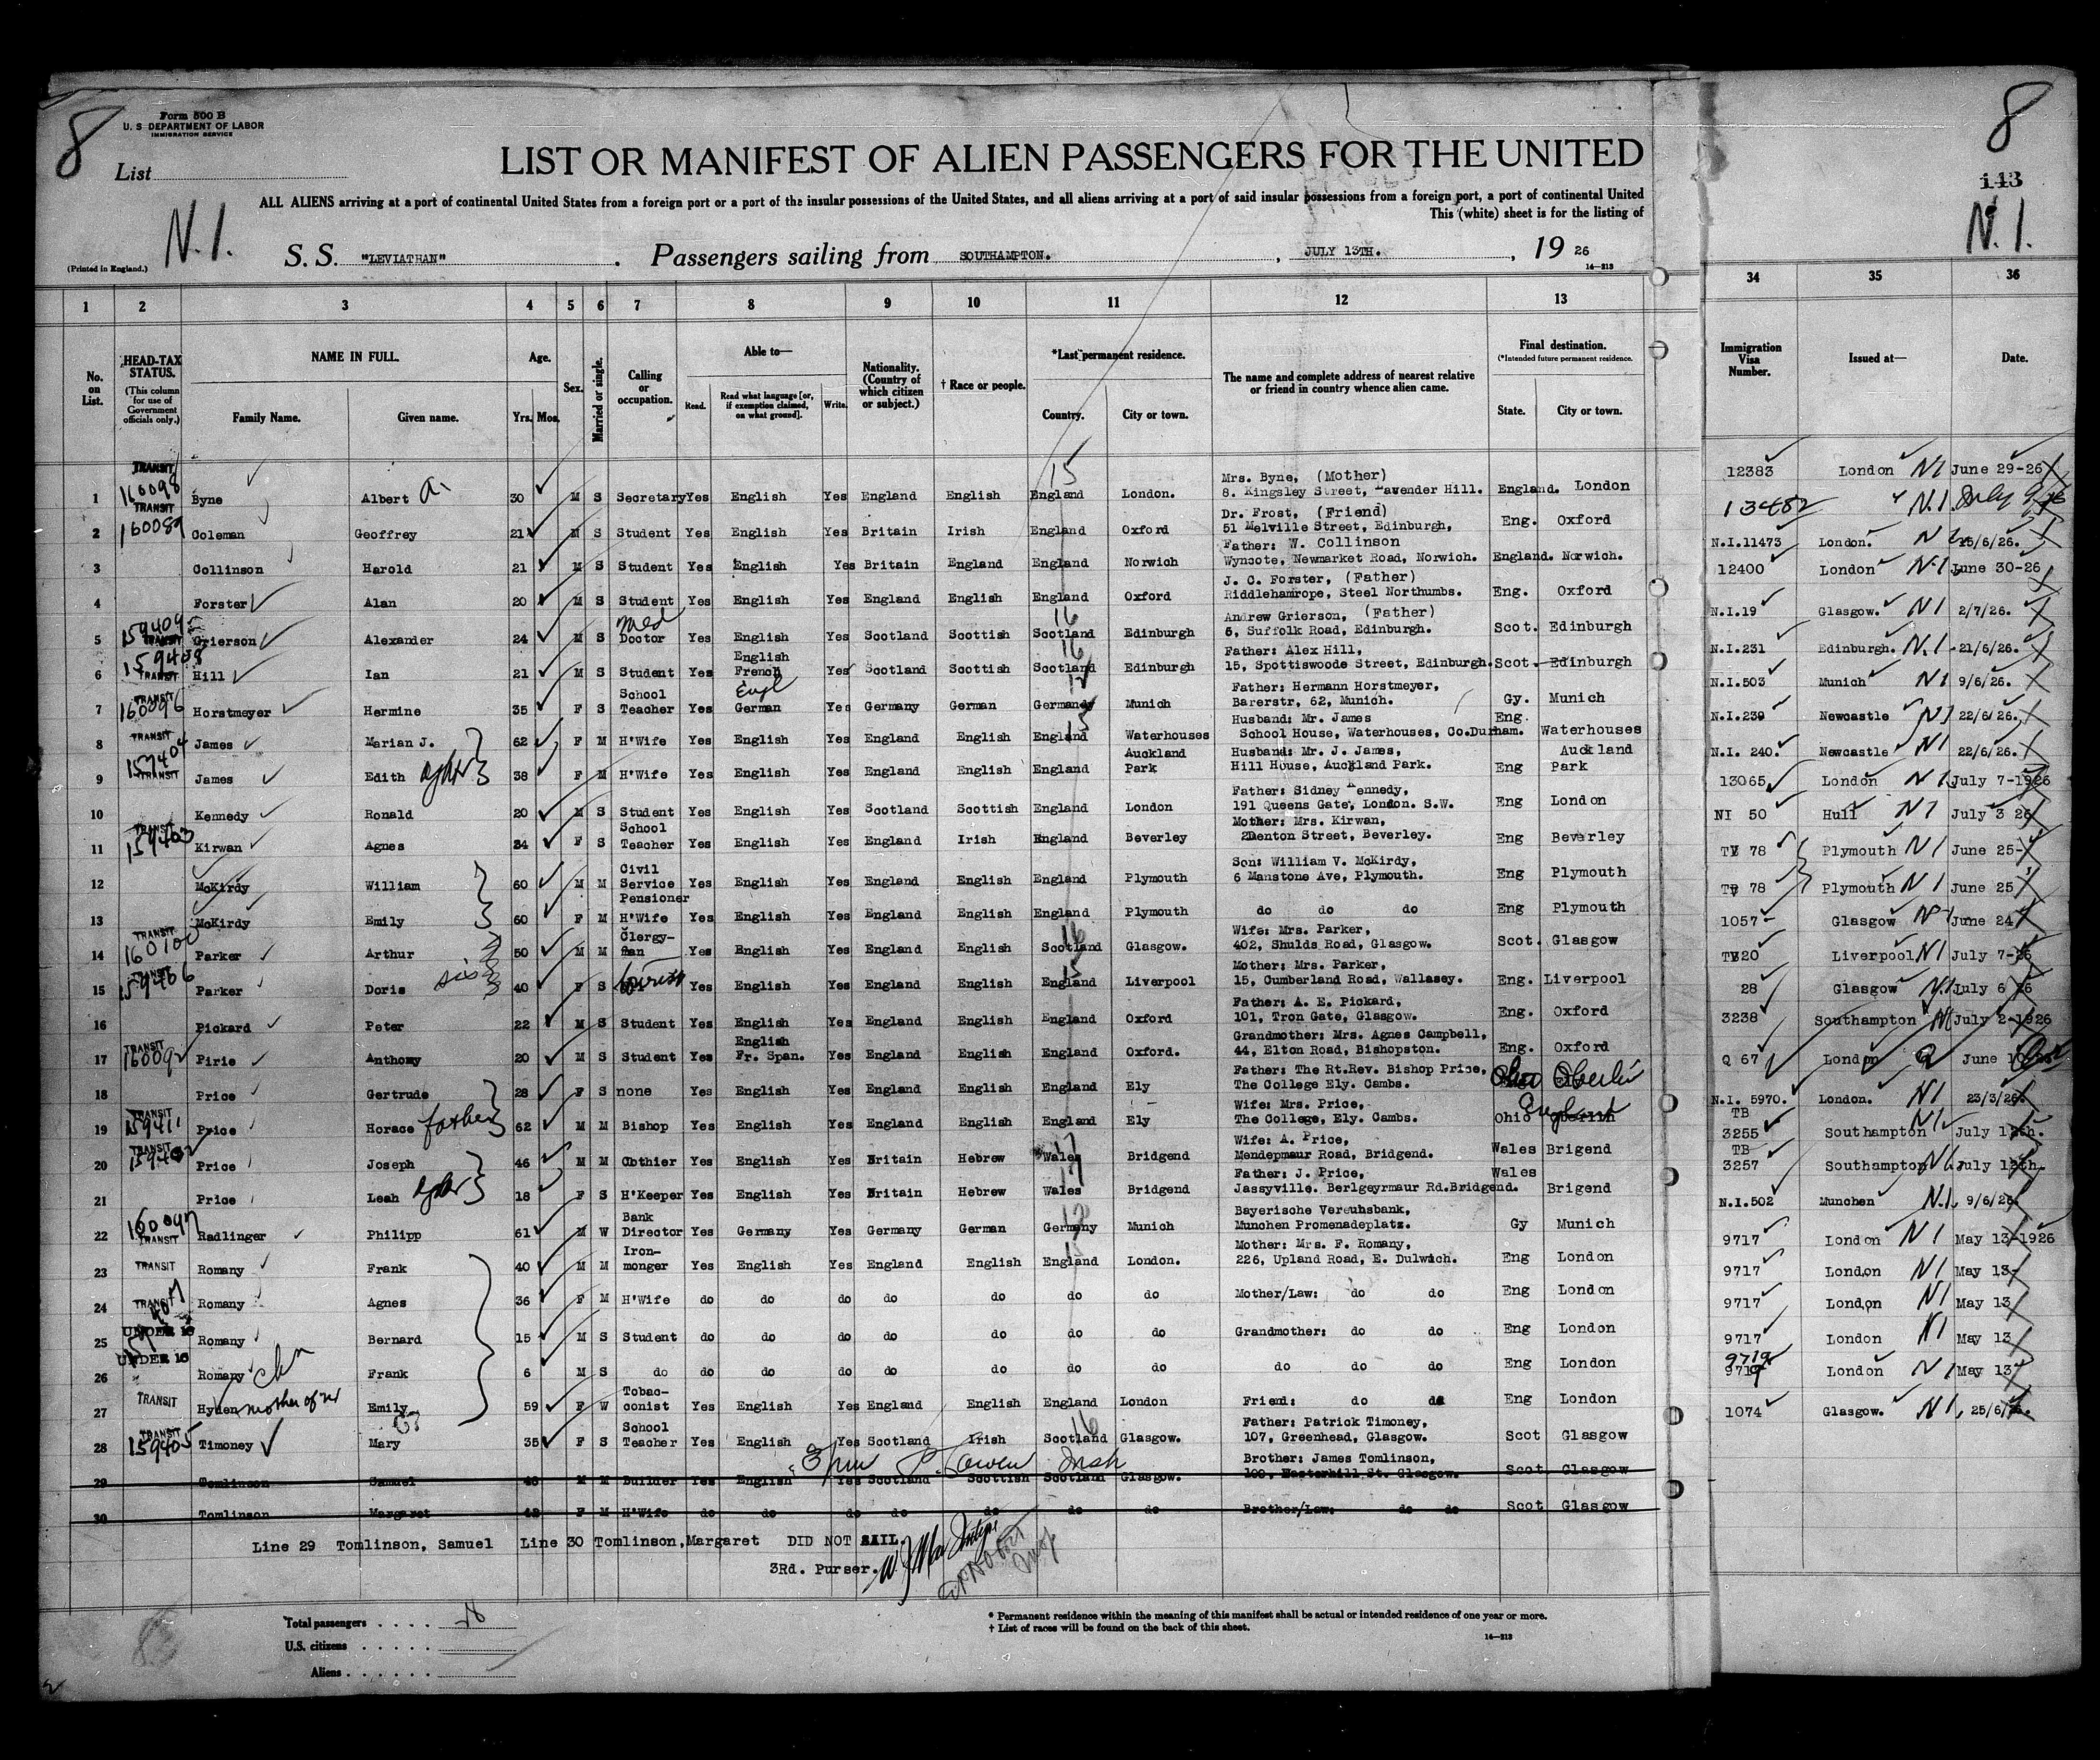 8
Form 500 B
U. S DEPARTMENT OF LABOR
IMMIGRATION SERVICE
List
8
143
LIST OR MANIFEST OF ALIEN PASSENGERS FOR THE UNITED
ALL ALIENS arriving at a port of continental United States from a foreign port or a part of the insular possessions of the United States, and all aliens arriving at a port of said insular possessions from a foreign port, a port of continental United
This (white) sheet is for the listing of
N.I.
N.I.
(Printed in England.)
S. S. "LEVIATHAN". Passengers sailing from SOUTHAMPTON., JULY 13TH., 19 26
14—213
1 2 3 4 5 6 7 8 9 10 11 12 13 34 35 36
No. on List. HEAD-TAX STATUS. (This column for use of Government officials only.) NAME IN FULL. Family Name. Given name. Age. Yrs. Mos. Sex. Married or single. Calling or occupation. Able to— Read. Read what language [or, if exemption claimed, on what ground]. Write. Nationality. (Country of which citizen or subject.) † Race or people. *Last permanent residence. Country. City or town. The name and complete address of nearest relative or friend in country whence alien came. Final destination. (*Intended future permanent residence. State. City or town. Immigration Visa Number. Issued at— Date.
1 TRANSIT 160098 Byne Albert A. 30 M S Secretary Yes English Yes England English England London. Mrs. Byne, (Mother) 8. Kingsley Street, Lavender Hill. England. London 12383 London NI June 29-26
2 TRANSIT 160089 Coleman Geoffrey 21 M S Student Yes English Yes Britain Irish England Oxford Dr. Frost, (Friend) 51 Melville Street, Edinburgh, Eng. Oxford 13482 N.I. July 9
3 Collinson Harold 21 M S Student Yes English Yes Britain England England Norwich Father: W. Collinson Wyncote, Newmarket Road, Norwich. England. Norwich. N.I.11473 London. 15/6/26.
4 Forster Alan 20 M S Student Yes English Yes England English England Oxford J. C. Forster, (Father) Riddlehamrope, Steel Northumbs. Eng. Oxford 12400 London N.I June 30-26
5 159409 TRANSIT Grierson Alexander 24 M S Med Doctor Yes English Yes Scotland Scottish Scotland Edinburgh Andrew Grierson, (Father) 5, Suffolk Road, Edinburgh. Scot. Edinburgh N.I.19 Glasgow. NI 2/7/26.
6 159408 TRANSIT Hill Ian 21 M S Student Yes English French Yes Scotland Scottish Scotland Edinburgh Father: Alex Hill, 15, Spottiswoode Street, Edinburgh. Scot. Edinburgh N.I.231 Edinburgh. N.I. 21/6/26.
7 TRANSIT 160096 Horstmeyer Hermine 35 F S School Teacher Yes Engl German Yes Germany German Germany Munich Father: Hermann Horstmeyer, Barerstr, 62, Munich. Gy. Munich N.I.503 Munich NI 9/6/26.
8 TRANSIT James Marian J. 62 F M H'Wife Yes English Yes England English England Waterhouses Husband: Mr. James School House, Waterhouses, Co.Durham. Eng. Waterhouses N.I.239 Newcastle NI 22/6/26.
9 157404 TRANSIT James Edith 38 F M H'Wife Yes English Yes England English England Auckland Park Husband: Mr. J. James, Hill House, Auckland Park. Eng Auckland Park N.I. 240. Newcastle NI 22/6/26.
10 Kennedy Ronald 20 M S Student Yes English Yes Scotland Scottish England London Father: Sidney Kennedy, 191 Queens Gate, London. S.W. Eng London 13065 London NI July 7-1926
11 TRANSIT 159403 Kirwan Agnes 34 F S School Teacher Yes English Yes England Irish England Beverley Mother: Mrs. Kirwan, 2Denton Street, Beverley. Eng Beverley NI 50 Hull NI July 3 26
12 McKirdy William 60 M M Civil Service Pensioner Yes English Yes England English England Plymouth Son: William V. McKirdy, 6 Manstone Ave, Plymouth. Eng Plymouth 78 Plymouth NI June 25-
13 McKirdy Emily 60 F M H'Wife Yes English Yes England English England Plymouth do do do Eng Plymouth 78 Plymouth NI June 25
14 TRANSIT 160100 Parker Arthur 50 M M Clergy-man Yes English Yes England English Scotland Glasgow. Wife: Mrs. Parker, 402, Shulds Road, Glasgow. Scot. Glasgow 1057 Glasgow June 24
15 TRANSIT 159406 Parker Doris sis 40 F S Yes English Yes England English England Liverpool Mother: Mrs. Parker, 15, Cumberland Road, Wallasey. Eng. Liverpool 20 Liverpool NI July 7-26
16 Pickard Peter 22 M S Student Yes English Yes England English England Oxford Father: A. E. Pickard, 101, Tron Gate, Glasgow. Eng. Oxford 28 Glasgow N.I July 6 26
17 TRANSIT 160092 Pirie Anthony 20 M S Student Yes English Fr. Span. Yes England English England Oxford. Grandmother: Mrs. Agnes Campbell, 44, Elton Road, Bishopston. Eng. Oxford 3238 Southampton NI July 2-1926
18 Price Gertrude 28 F S none Yes English Yes England English England Ely Father: The Rt.Rev. Bishop Price, The College Ely. Cambs. Ohio Oberlin Q 67 London Q June 10
19 TRANSIT 159411 Price Horace father 62 M M Bishop Yes English Yes England English England Ely Wife: Mrs. Price, The College, Ely. Cambs. Ohio England N.I. 5970. London. NI 23/3/26.
20 TRANSIT 159402 Price Joseph 46 M M Clothier Yes English Yes Britain Hebrew Wales Bridgend Wife: A. Price, Mendepmaur Road, Bridgend. Wales Brigend TB 3255 Southampton NI July 12th.
21 Price Leah 18 F S H'Keeper Yes English Yes Britain Hebrew Wales Bridgend Father: J. Price, Jassyville. Berlgeyrmaur Rd.Bridgend. Wales Brigend TB 3257 Southampton NI July 12th.
22 160097 TRANSIT Radlinger Philipp 61 M W Bank Director Yes Germany Yes Germany German Germany Munich Bayerische Vereuhsbank, Munchen Promenadeplatz. Gy Munich N.I.502 Munchen N.I. 9/6/26
23 TRANSIT Romany Frank 40 M M Iron-monger Yes English Yes England English England London. Mother: Mrs. F. Romany, 226, Upland Road, E. Dulwich. Eng London 9717 London NI May 13-1926
24 TRANSIT Romany Agnes 36 F M H'Wife do do do do do do do Mother/Law: do do Eng London 9717 London NI May 13-
25 UNDER 16 Romany Bernard 15 M S Student do do do do do do do Grandmother: do do Eng London 9717 London NI May 13
26 UNDER 16 Romany Frank 6 M S do do do do do do do do do do do Eng London 9717 London NI May 13
27 TRANSIT Hyden mother of Emily 59 F W Tobac-conist Yes English Yes England English England London Friend: do do Eng London 9719 London NI May 13
28 TRANSIT 159405 Timoney Mary 35 F S School Teacher Yes English Yes Scotland Irish Scotland Glasgow. Father: Patrick Timoney, 107, Greenhead, Glasgow. Scot Glasgow 1074 Glasgow. NI. 25/6/26.
29 Tomlinson Samuel 48 M M Builder Yes English Yes Scotland Scottish Scotland Glasgow. Brother: James Tomlinson, 109, Easterhill St. Glasgow. Scot Glasgow
30 Tomlinson Margaret 42 F M H'Wife do do do do do do do Brother/Law: do do Scot Glasgow
Line 29 Tomlinson, Samuel Line 30 Tomlinson,Margaret DID NOT SAIL.
3Rd. Purser.
Total passengers . . . . 28
U.S. citizens . . . . .
Aliens . . . . . .
* Permanent residence within the meaning of this manifest shall be actual or intended residence of one year or more.
† List of races will be found on the back of this sheet.
14—213